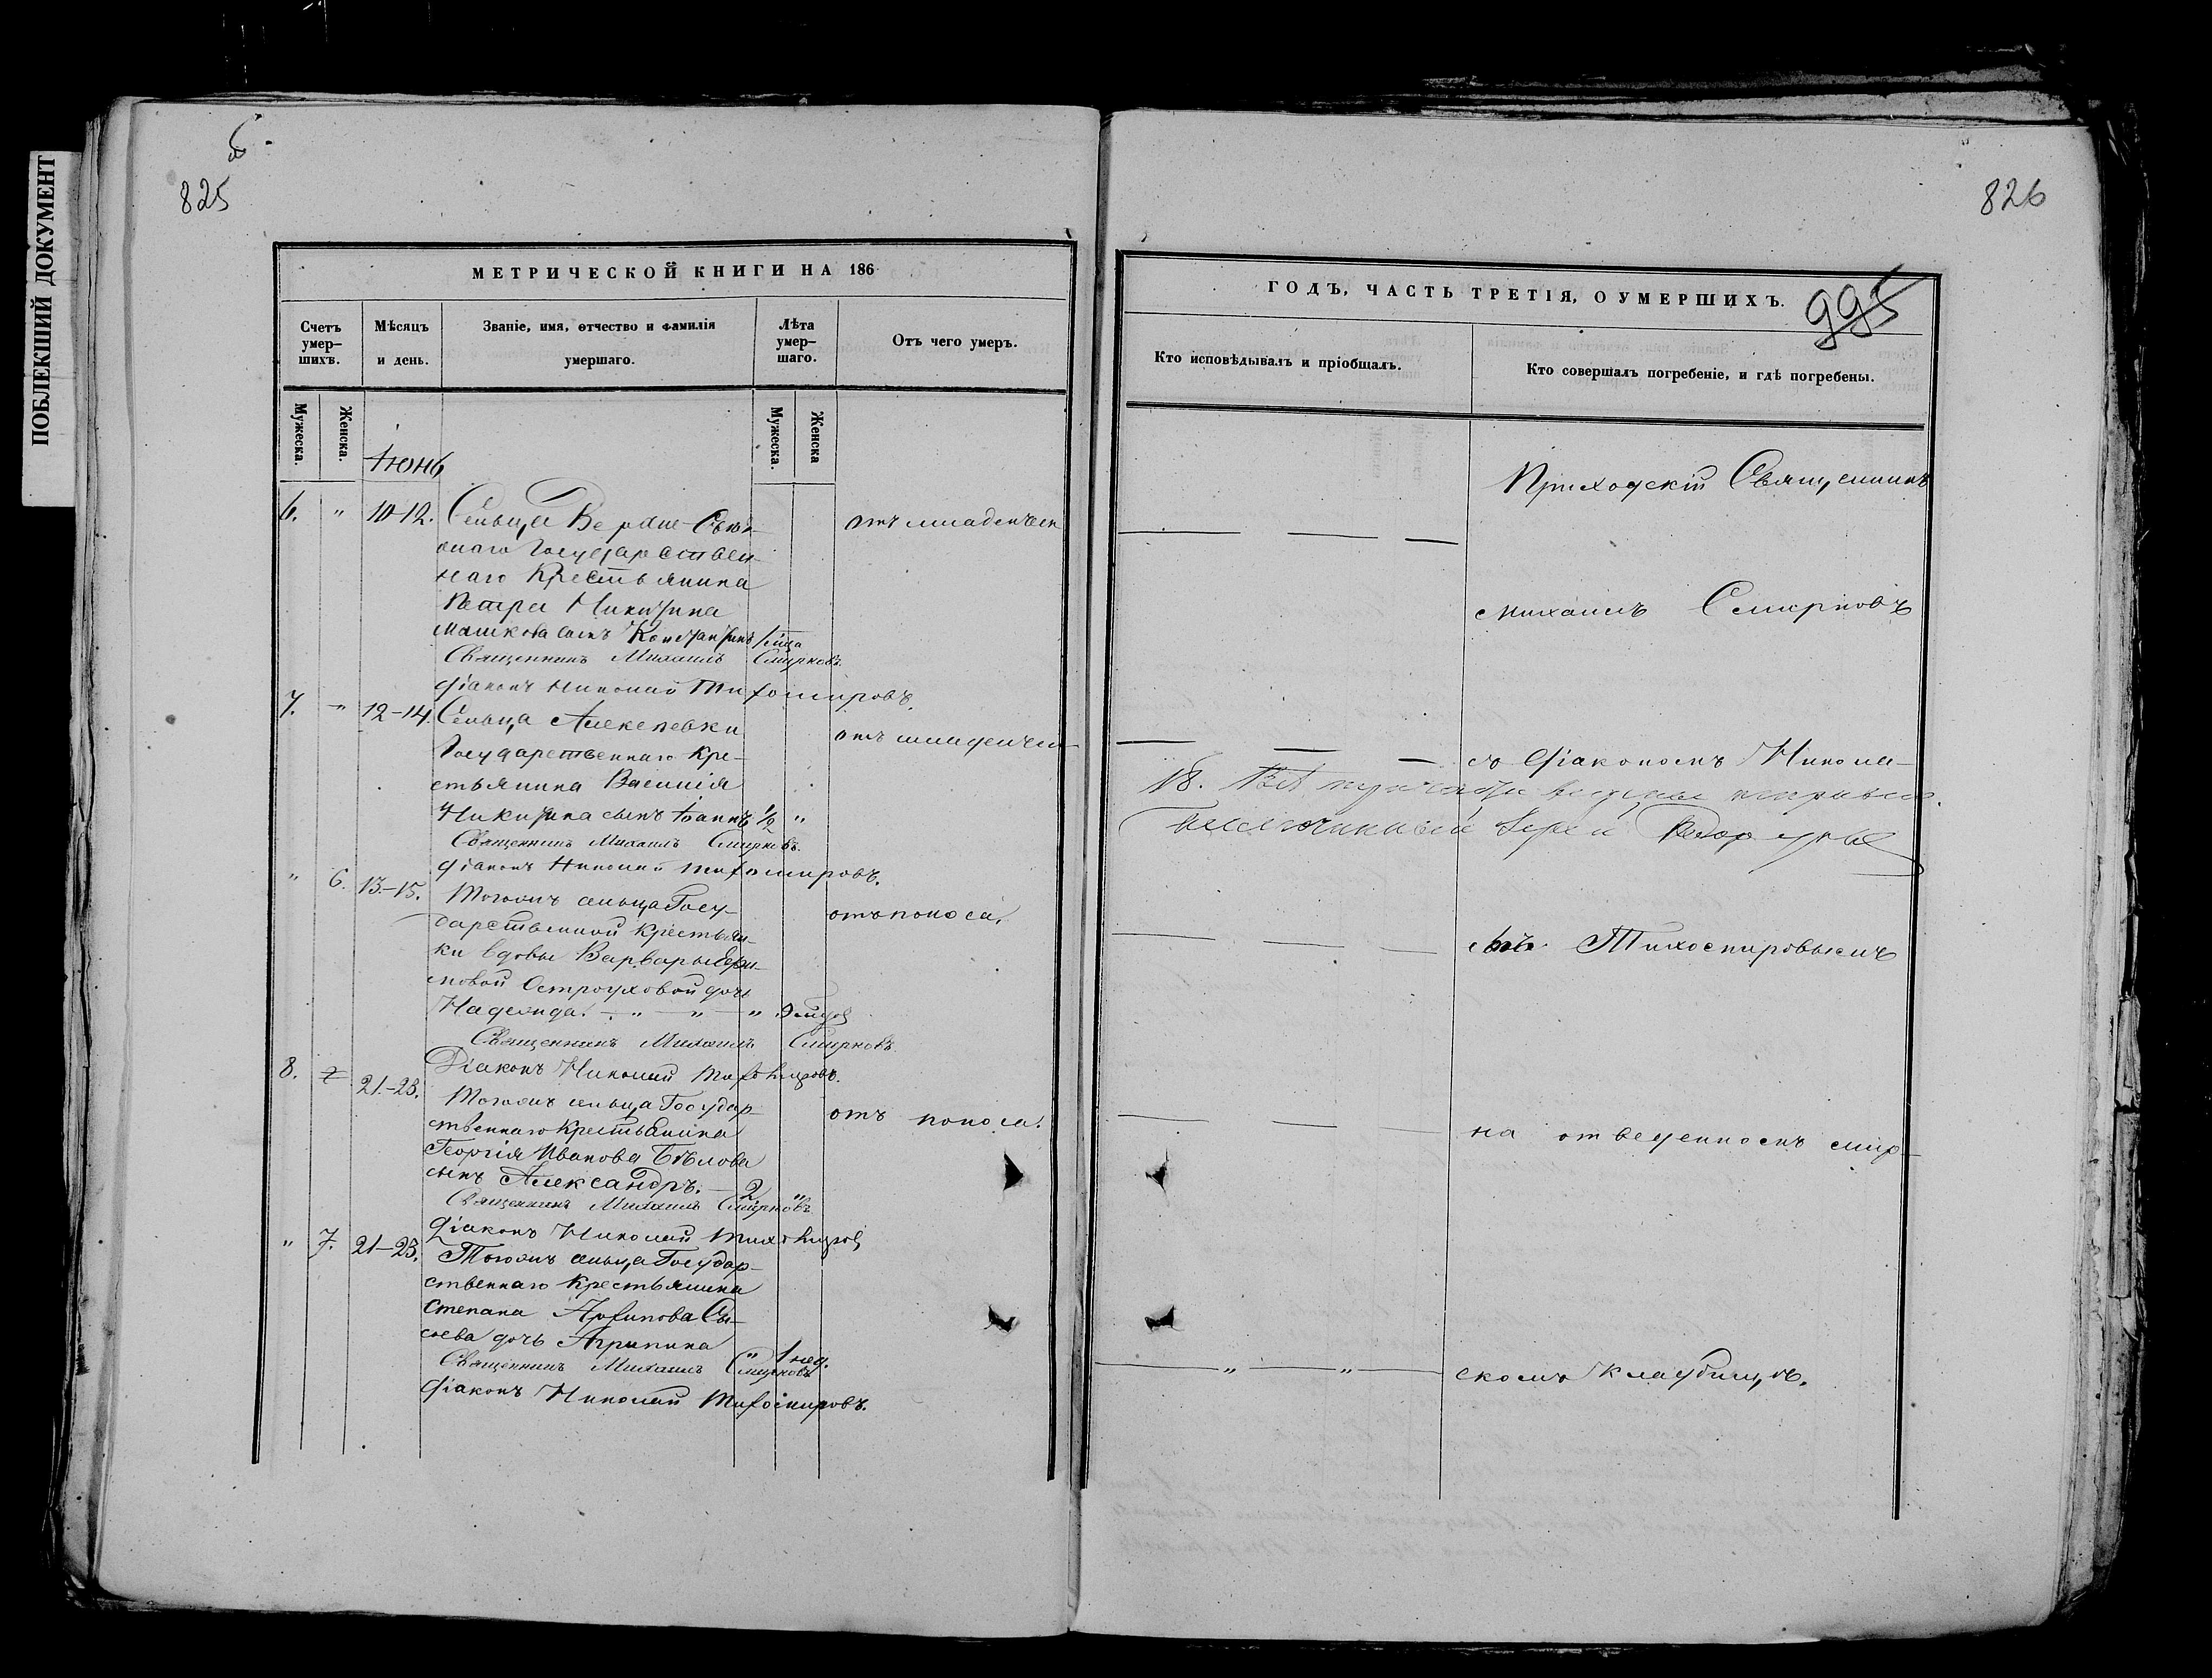 ПОБЛЕКШИЙ ДОКУМЕНТ
6
825
МЕТРИЧЕСКОЙ КНИГИ НА 186
Счетъ умер-шихъ.
Мѣсяцъ и день.
Званіе, имя, отчество и фамилія умершаго.
Лѣта умер-шаго.
Отъ чего умеръ.
Мужеска.
Женска.
Мужеска.
Женска
Іюнь
6. " 10-12. Сельца Верхне-
отъ младенческ
наго Государствен-
наго Крестьянина
Петра Никитина
Машкова сынъ Константинъ
Священникъ Михаилъ Смирновъ.
Діаконъ Николай Тихомировъ.
7. " 12-14. Сельца Алексеевки
отъ младенчес-
Государственнаго Кре-
стьянина Василія
Никитина сынъ Іоаннъ ½ "
Священникъ Михаилъ Смирновъ.
Діаконъ Николай Тихомировъ.
" 6. 13-15. Тогожъ сельца Госу-
отъ поноса.
дарственной крестьян-
ки вдовы Варвары Ефи-
мовой Остроуховой дочь
Надежда. " " "
Священникъ Михаилъ Смирновъ
Діаконъ Николай Тихомировъ.
8. 21-23. Тогожъ сельца Государ-
отъ поноса.
ственнаго Крестьянина
Георгія Иванова Бѣлова
сынъ Александръ. 2 "
Священникъ Михаилъ Смирновъ
Діаконъ Николай Тихомировъ
" 7. 21-23. Тогожъ сельца Государ-
ственнаго Крестьянина
Степана Архипова Сы-
соева дочь Агрипина " 1 нед.
Священникъ Михаилъ Смирновъ
Діаконъ Николай Тихомировъ.
826
ГОДЪ, ЧАСТЬ ТРЕТІЯ, О УМЕРШИХЪ.
995
Кто исповѣдывалъ и пріобщалъ.
Кто совершалъ погребеніе, и гдѣ погребены.
Приходскій Священникъ
Михаилъ Смирновъ
съ Діакономъ Никола-
18.
Благочинный
Тихомировымъ
на отведенномъ мир-
" "
скомъ кладбищѣ.